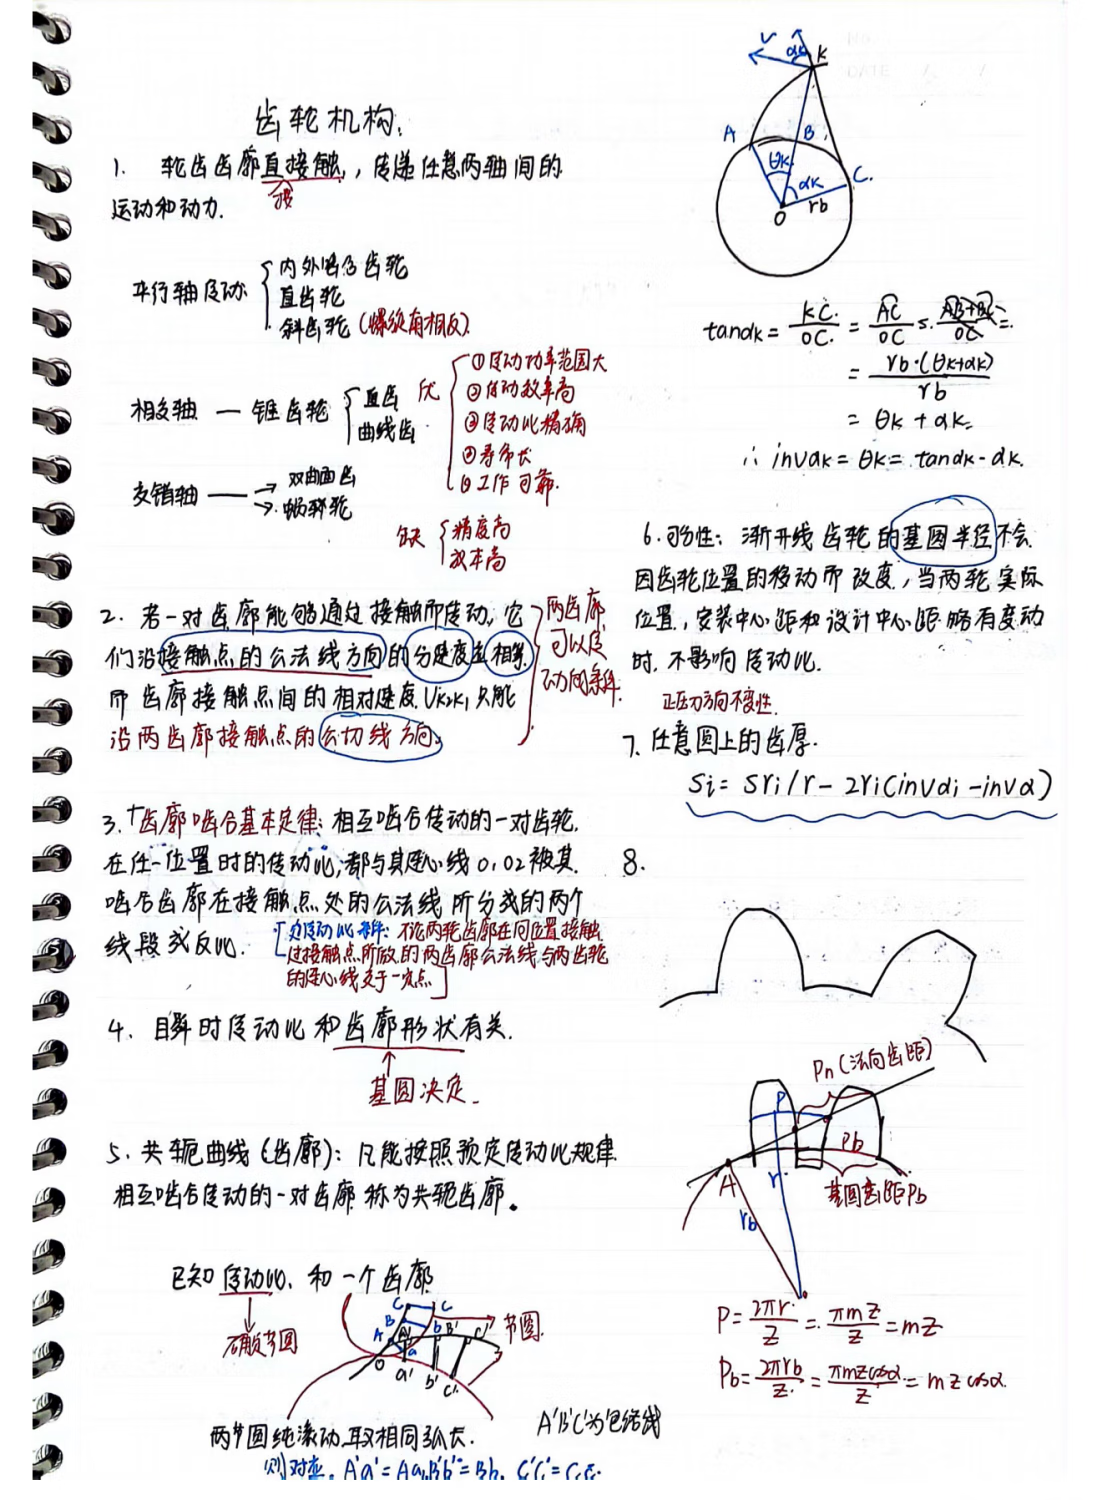 齿轮机构.
1. 轮齿齿廓直接触,传递任意两轴间的
接
运动和动力.
平行轴传动
内外啮合齿轮
直齿轮
斜齿轮(螺纹角相反).
相交轴 — 锥齿轮
直齿
曲线齿
优
①传动功率范围大
②传动效率高
③传动比精确
④寿命长
⑤工作可靠.
交错轴 →
双曲面齿
蜗杆轮
缺
精度高
成本高
2. 若一对齿廓能够通过接触而传动,它
们沿接触点的公法线方向的分速度应相等.
而齿廓接触点间的相对速度Uk2k1只能
沿两齿廓接触点的公切线方向.
两齿廓
可以传
动的条件.
3.「齿廓啮合基本定律:相互啮合传动的一对齿轮.
在任一位置时的传动比,都与其连心线O1O2被其
啮合齿廓在接触点处的公法线所分成的两个
线段成反比.
[定传动比条件:不论两轮齿廓在何位置接触
过接触点所做的两齿廓公法线与两齿轮
的连心线交于一定点]
4. 瞬时传动比和齿廓形状有关.
基圆决定.
5. 共轭曲线(齿廓):凡能按照预定传动比规律
相互啮合传动的一对齿廓称为共轭齿廓。
已知传动比、和一个齿廓
确定节圆
C C
B b B' C'
A A'
a
O a' b' C'
节圆.
两节圆纯滚动.取相同弧长.
A'B'C'为包络线
则对应. A'a'=Aa,B'b'=Bb, C'C'=C.c.
V αk K
A B
θk αk C.
O rb
tanαk = KC/OC = AC/OC
= rb·(θk+αk)/rb
= θk+αk.
∴ invαk = θk = tanαk - αk.
6. 可分性: 渐开线齿轮的基圆半径不会
因齿轮位置的移动而改变,当两轮实际
位置,安装中心距和设计中心距略有变动
时.不影响传动比.
正压力方向不变性.
7. 任意圆上的齿厚.
Si = Sri/r - 2ri(invαi - invα)
8.
Pn(法向齿距)
P
Pb
A r
rb
基圆齿距Pb
P = 2πr/Z = πmZ/Z = mZ
Pb = 2πrb/Z = πmZcosα/Z = mZcosα.